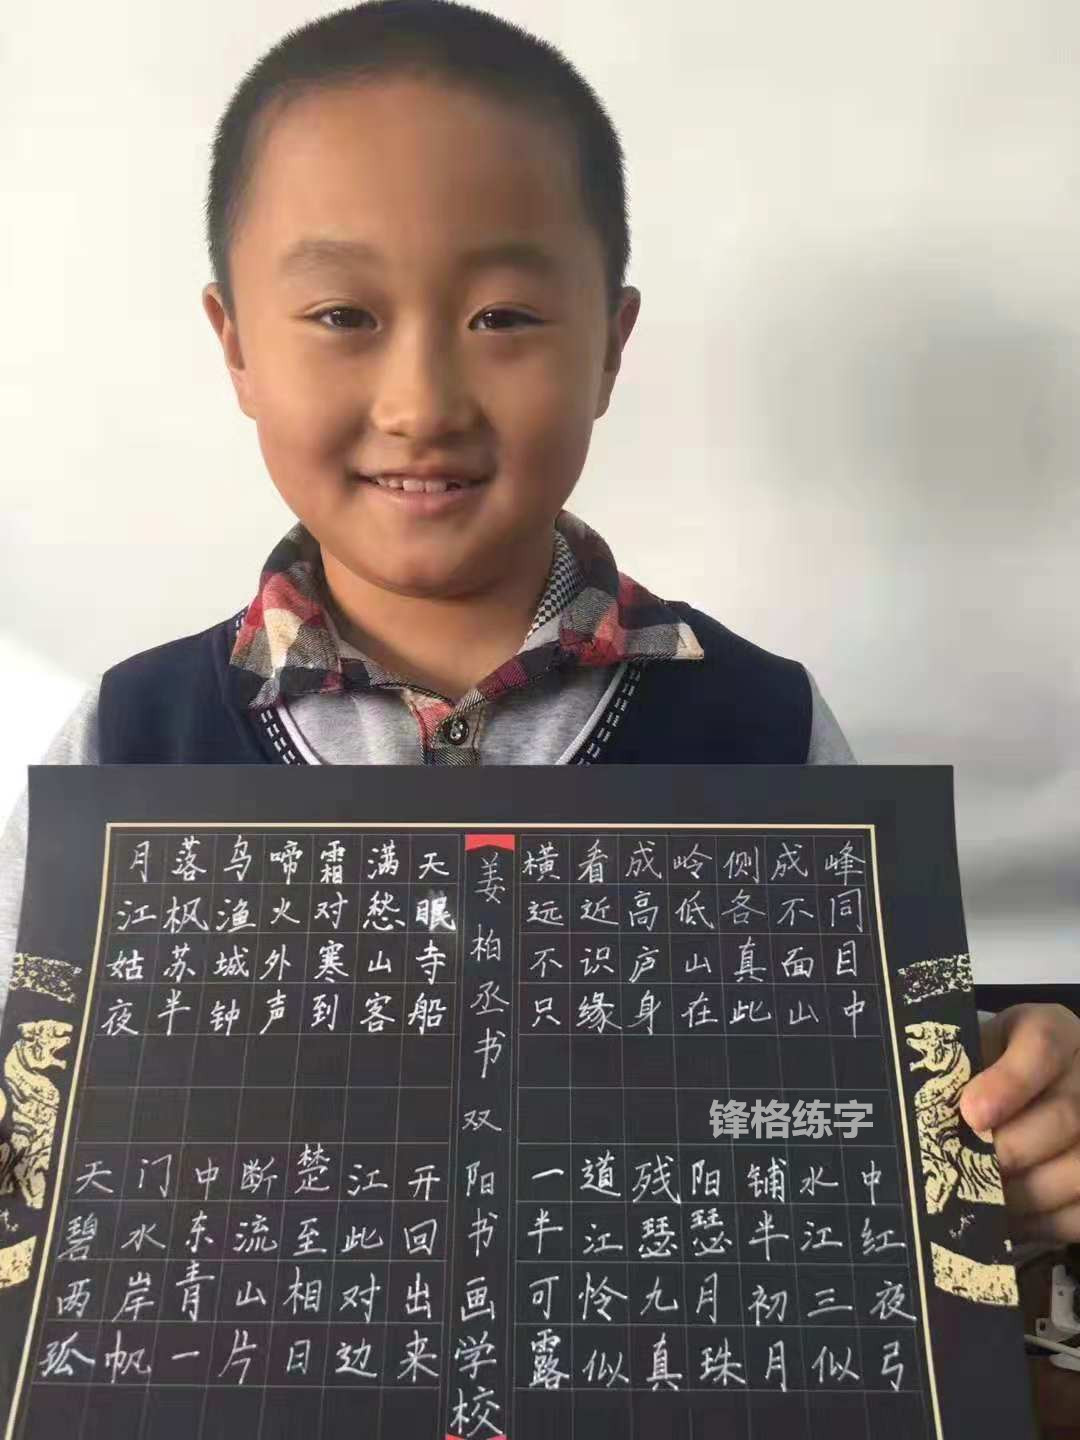 月落乌啼霜满天
江枫渔火对愁眠
姑苏城外寒山寺
夜半钟声到客船
天门中断楚江开
碧水东流至此回
两岸青山相对出
孤帆一片日边来
姜柏丞书 双阳书画学校
横看成岭侧成峰
远近高低各不同
不识庐山真面目
只缘身在此山中
锋格练字
一道残阳铺水中
半江瑟瑟半江红
可怜九月初三夜
露似真珠月似弓